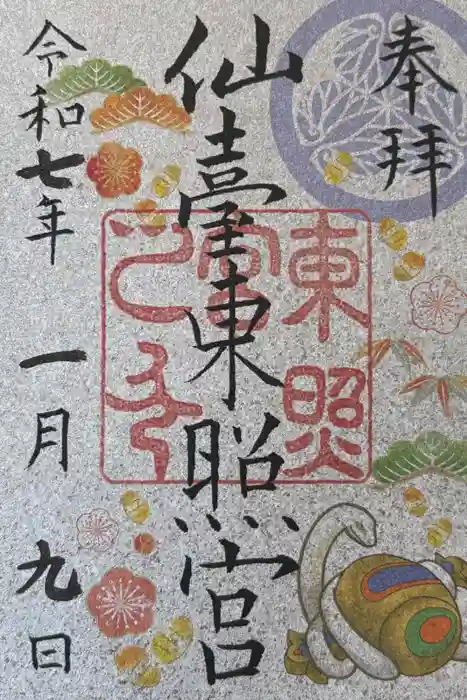 奉拝
仙臺東照宮
令和七年一月九日
東照
宮